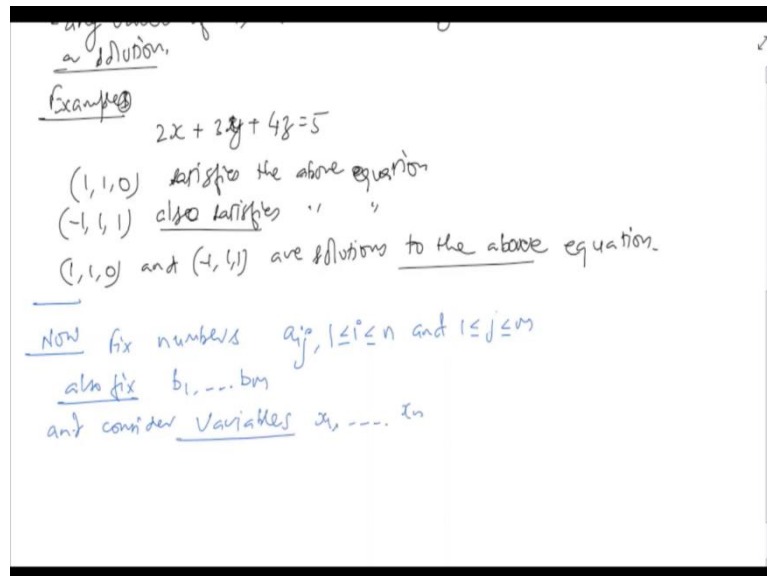 a solution.
Examples
2x + 3y + 4z = 5
(1, 1, 0) satisfies the above equation
(-1, 1, 1) also satisfies " "
(1, 1, 0) and (-1, 1, 1) are solutions to the above equation.
Now fix numbers aij, 1 ≤ i ≤ n and 1 ≤ j ≤ m
also fix b1, .... bm
and consider variables x1, .... xn